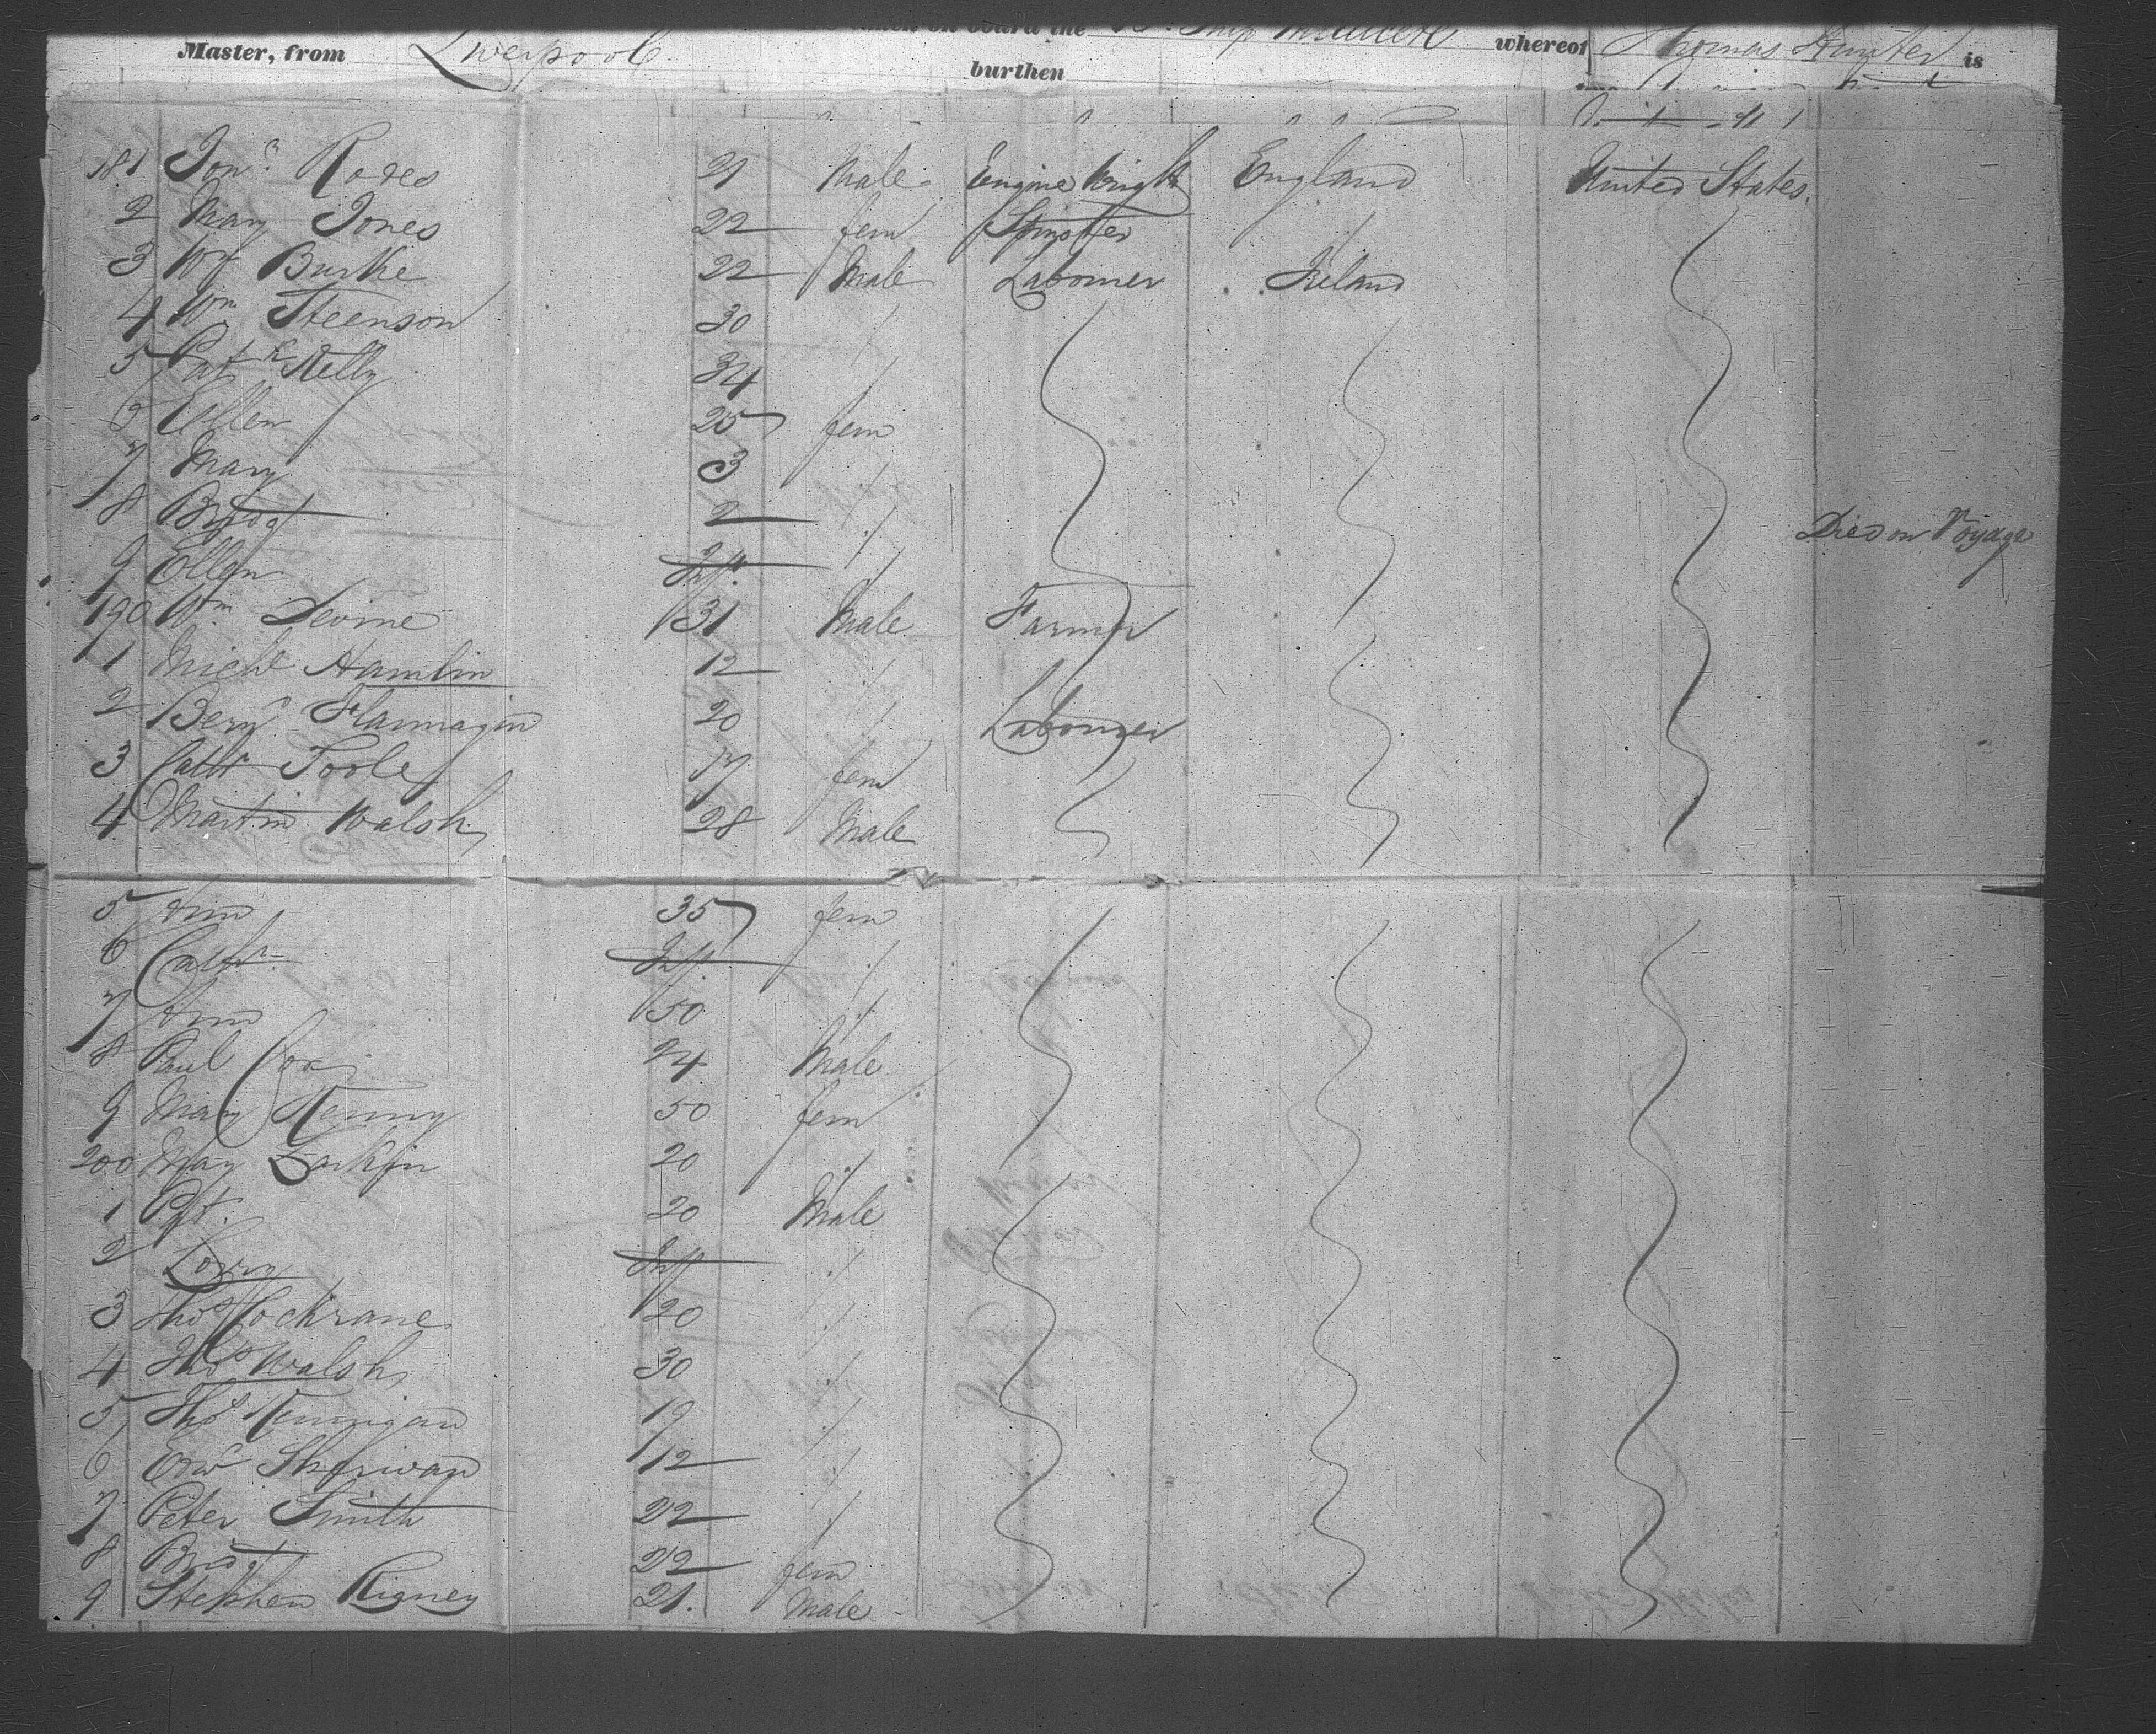 on board the Br. Ship whereof Thomas Hunter is
Master, from Liverpool burthen
181 Jon.n Rores 21 Male Engine Wright England United States.
2 Mary Jones 22 fem Spinster
3 Wm Burke 22 Male Labourer Ireland
4 Wm Steenson 30 "
5 Patk Kelly 34 "
6 Ellen 25 fem
7 Mary 3 "
8 Bridgt 2 " Died on Voyage
9 Ellen Inft. "
190 Wm Devine 31 Male Farmer
1 Michl Hamlin 12 "
2 Benj. Flannagin 20 " Labourer
3 Cathr Toole 17 fem
4 Martin Walsh 28 Male
5 Ann 35 fem
6 Cathr. Inft. "
7 Ann 50 "
8 Paul Cox 24 Male
9 Mary Kenny 50 fem
200 May Larkin 20 "
1 Pat. 20 Male
2 Inft "
3 Thos Cockrane 20 "
4 Thos Walsh 30 "
5 Thos Kennigan 19 "
6 Edwd 12 "
7 Peter Smith 22 "
8 Bridgt 22 fem
9 Stephen Rigney 21. Male